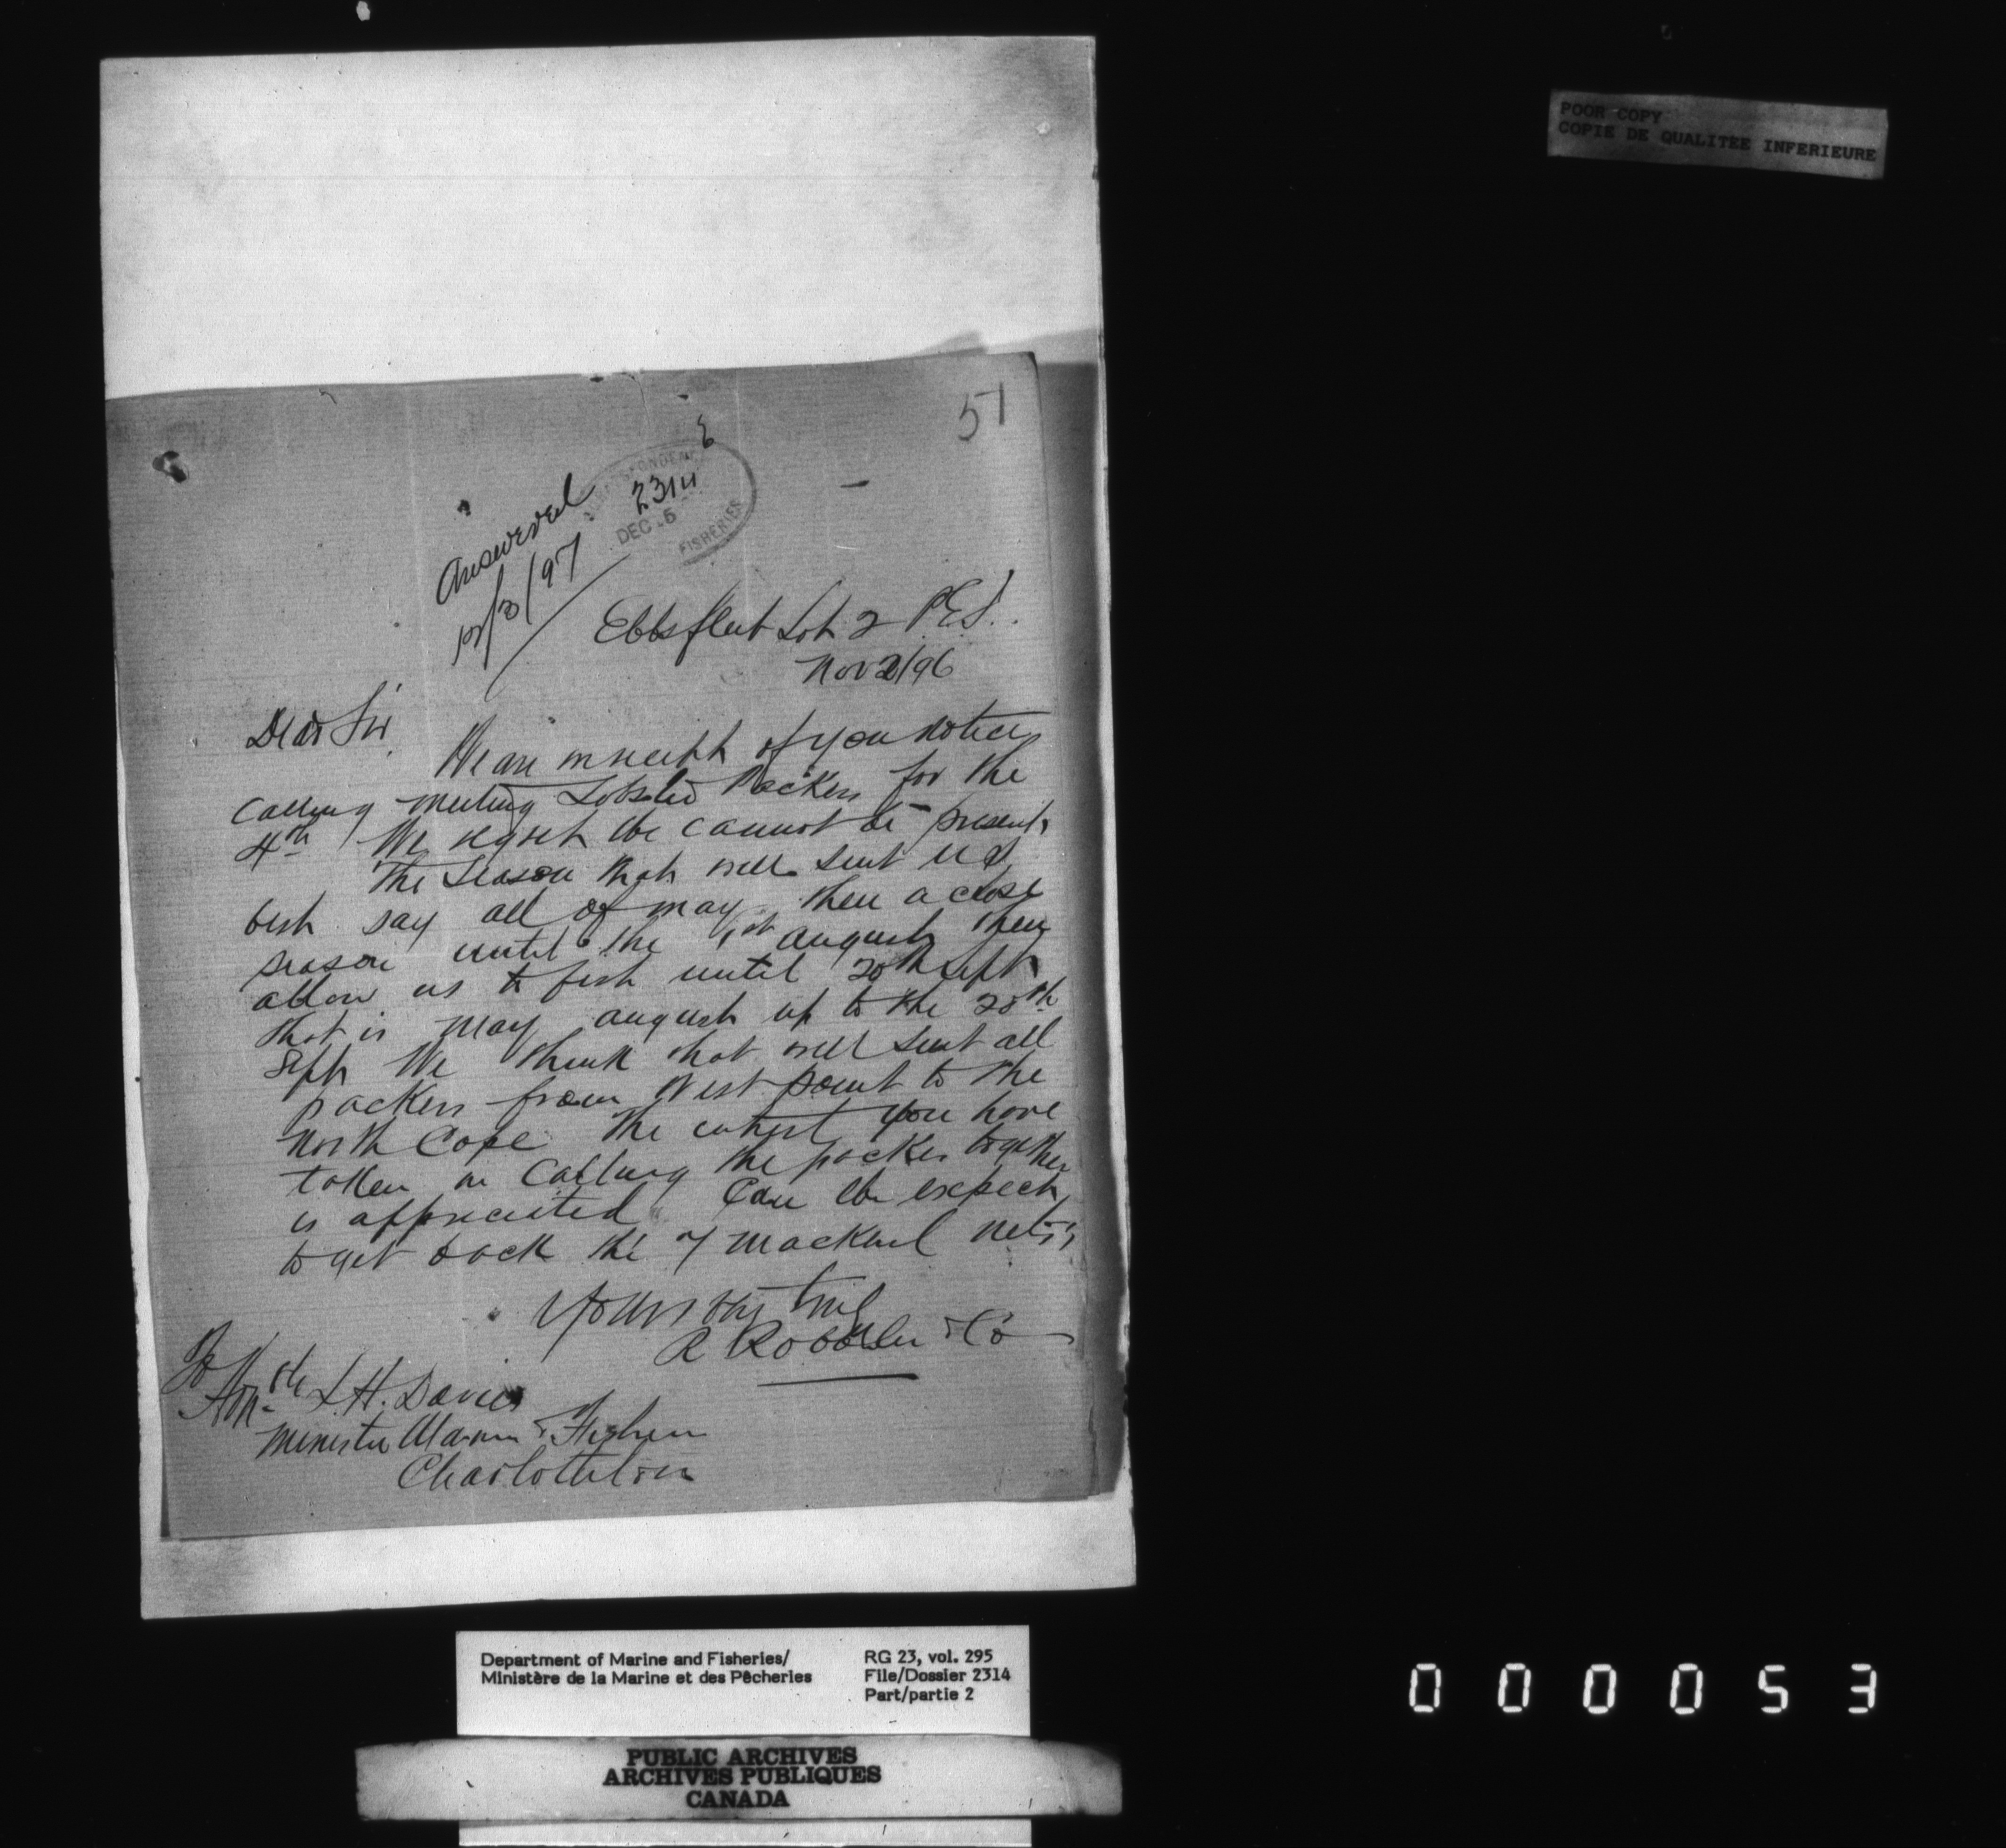 POOR COPY
COPIE DE QUALITEE INFERIEURE
51
CORRESPONDENCE
2314
DEC 5
FISHERIES
Answered
/97
Ebbsfleet Lot 2 P.E.I.
Nov 2/96
Dear Sir
We are in receipt of your notice
calling meeting Lobster Packers for the
4th We regret we cannot be present,
The Season that will suit us
best say all of may then a close
season until the 1st august then
allow us to fish until 20th Sept
that is may august up to the 20th
Sept We think that will suit all
packers from West point to the
North Cape The intrest you have
taken in Calling the packers together
is appreciated Can we expect
to get back the 7 mackerel nets,
Yours very truly
R & Co
To
Honble L H. Davies
Minister Marine & Fisheries
Charlottetown
Department of Marine and Fisheries/
Ministère de la Marine et des Pêcheries
RG 23, vol. 295
File/Dossier 2314
Part/partie 2
PUBLIC ARCHIVES
ARCHIVES PUBLIQUES
CANADA
000053